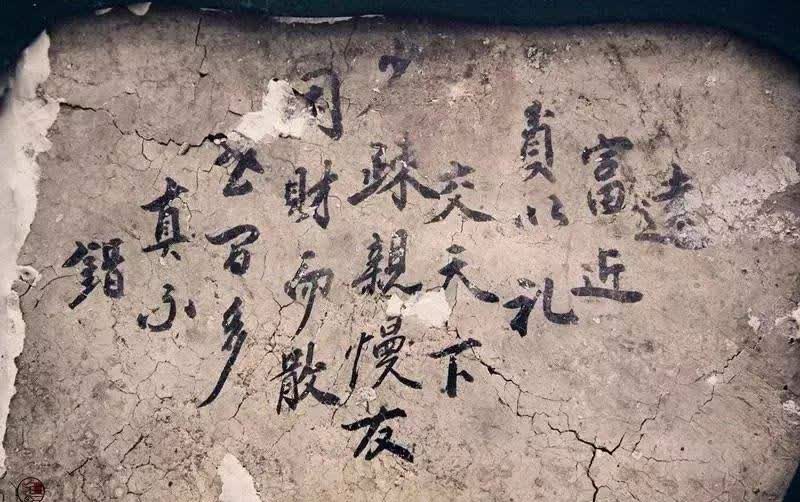 遠
富近
貧以礼
交天下
少疎親慢友
因財而散
百多
真不
錯